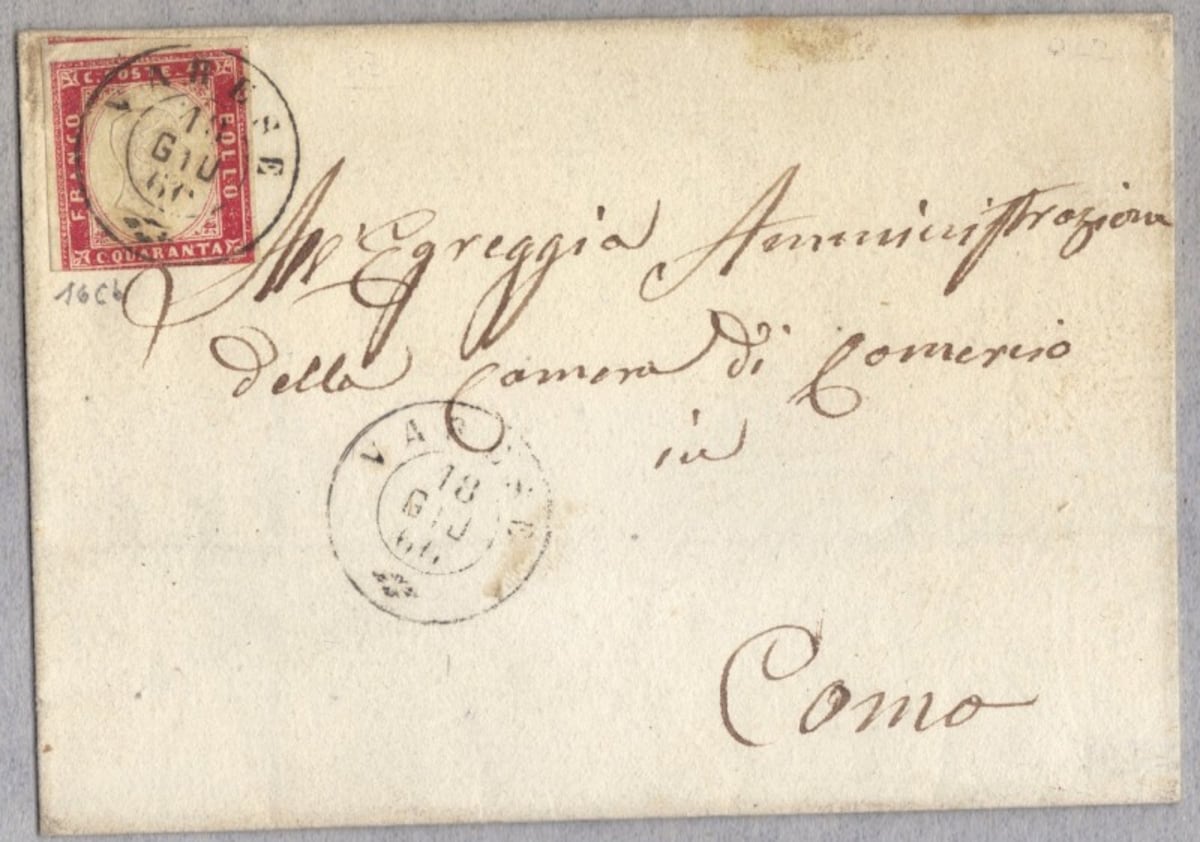 C. POSTE
FRANCO
BOLLO
C. QUARANTA
VARESE
18
GIU
16Cb
All'Egreggia Amministrazione
della Camera di Comercio
in
VARESE
18
GIU
66
Como